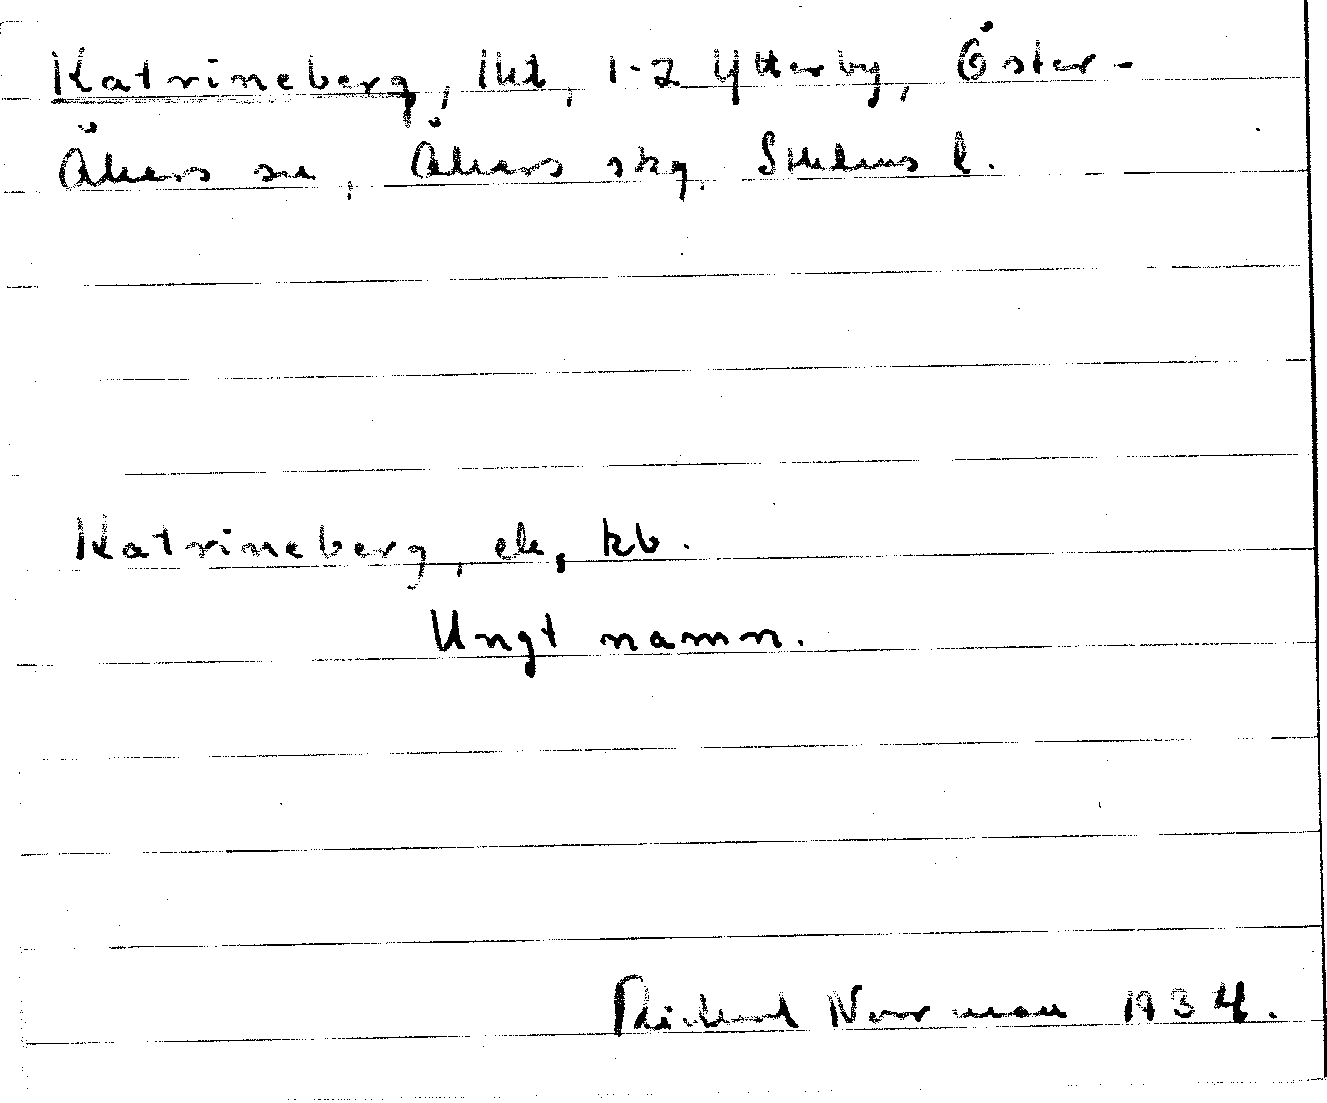 Katrineberg, lht, 1-2 Ytterby, Öster-
Åkers sn, Åkers skg. Sthlms l.
Katrineberg, ek, kb.
Ungt namn.
Rickard Norrman 1934.